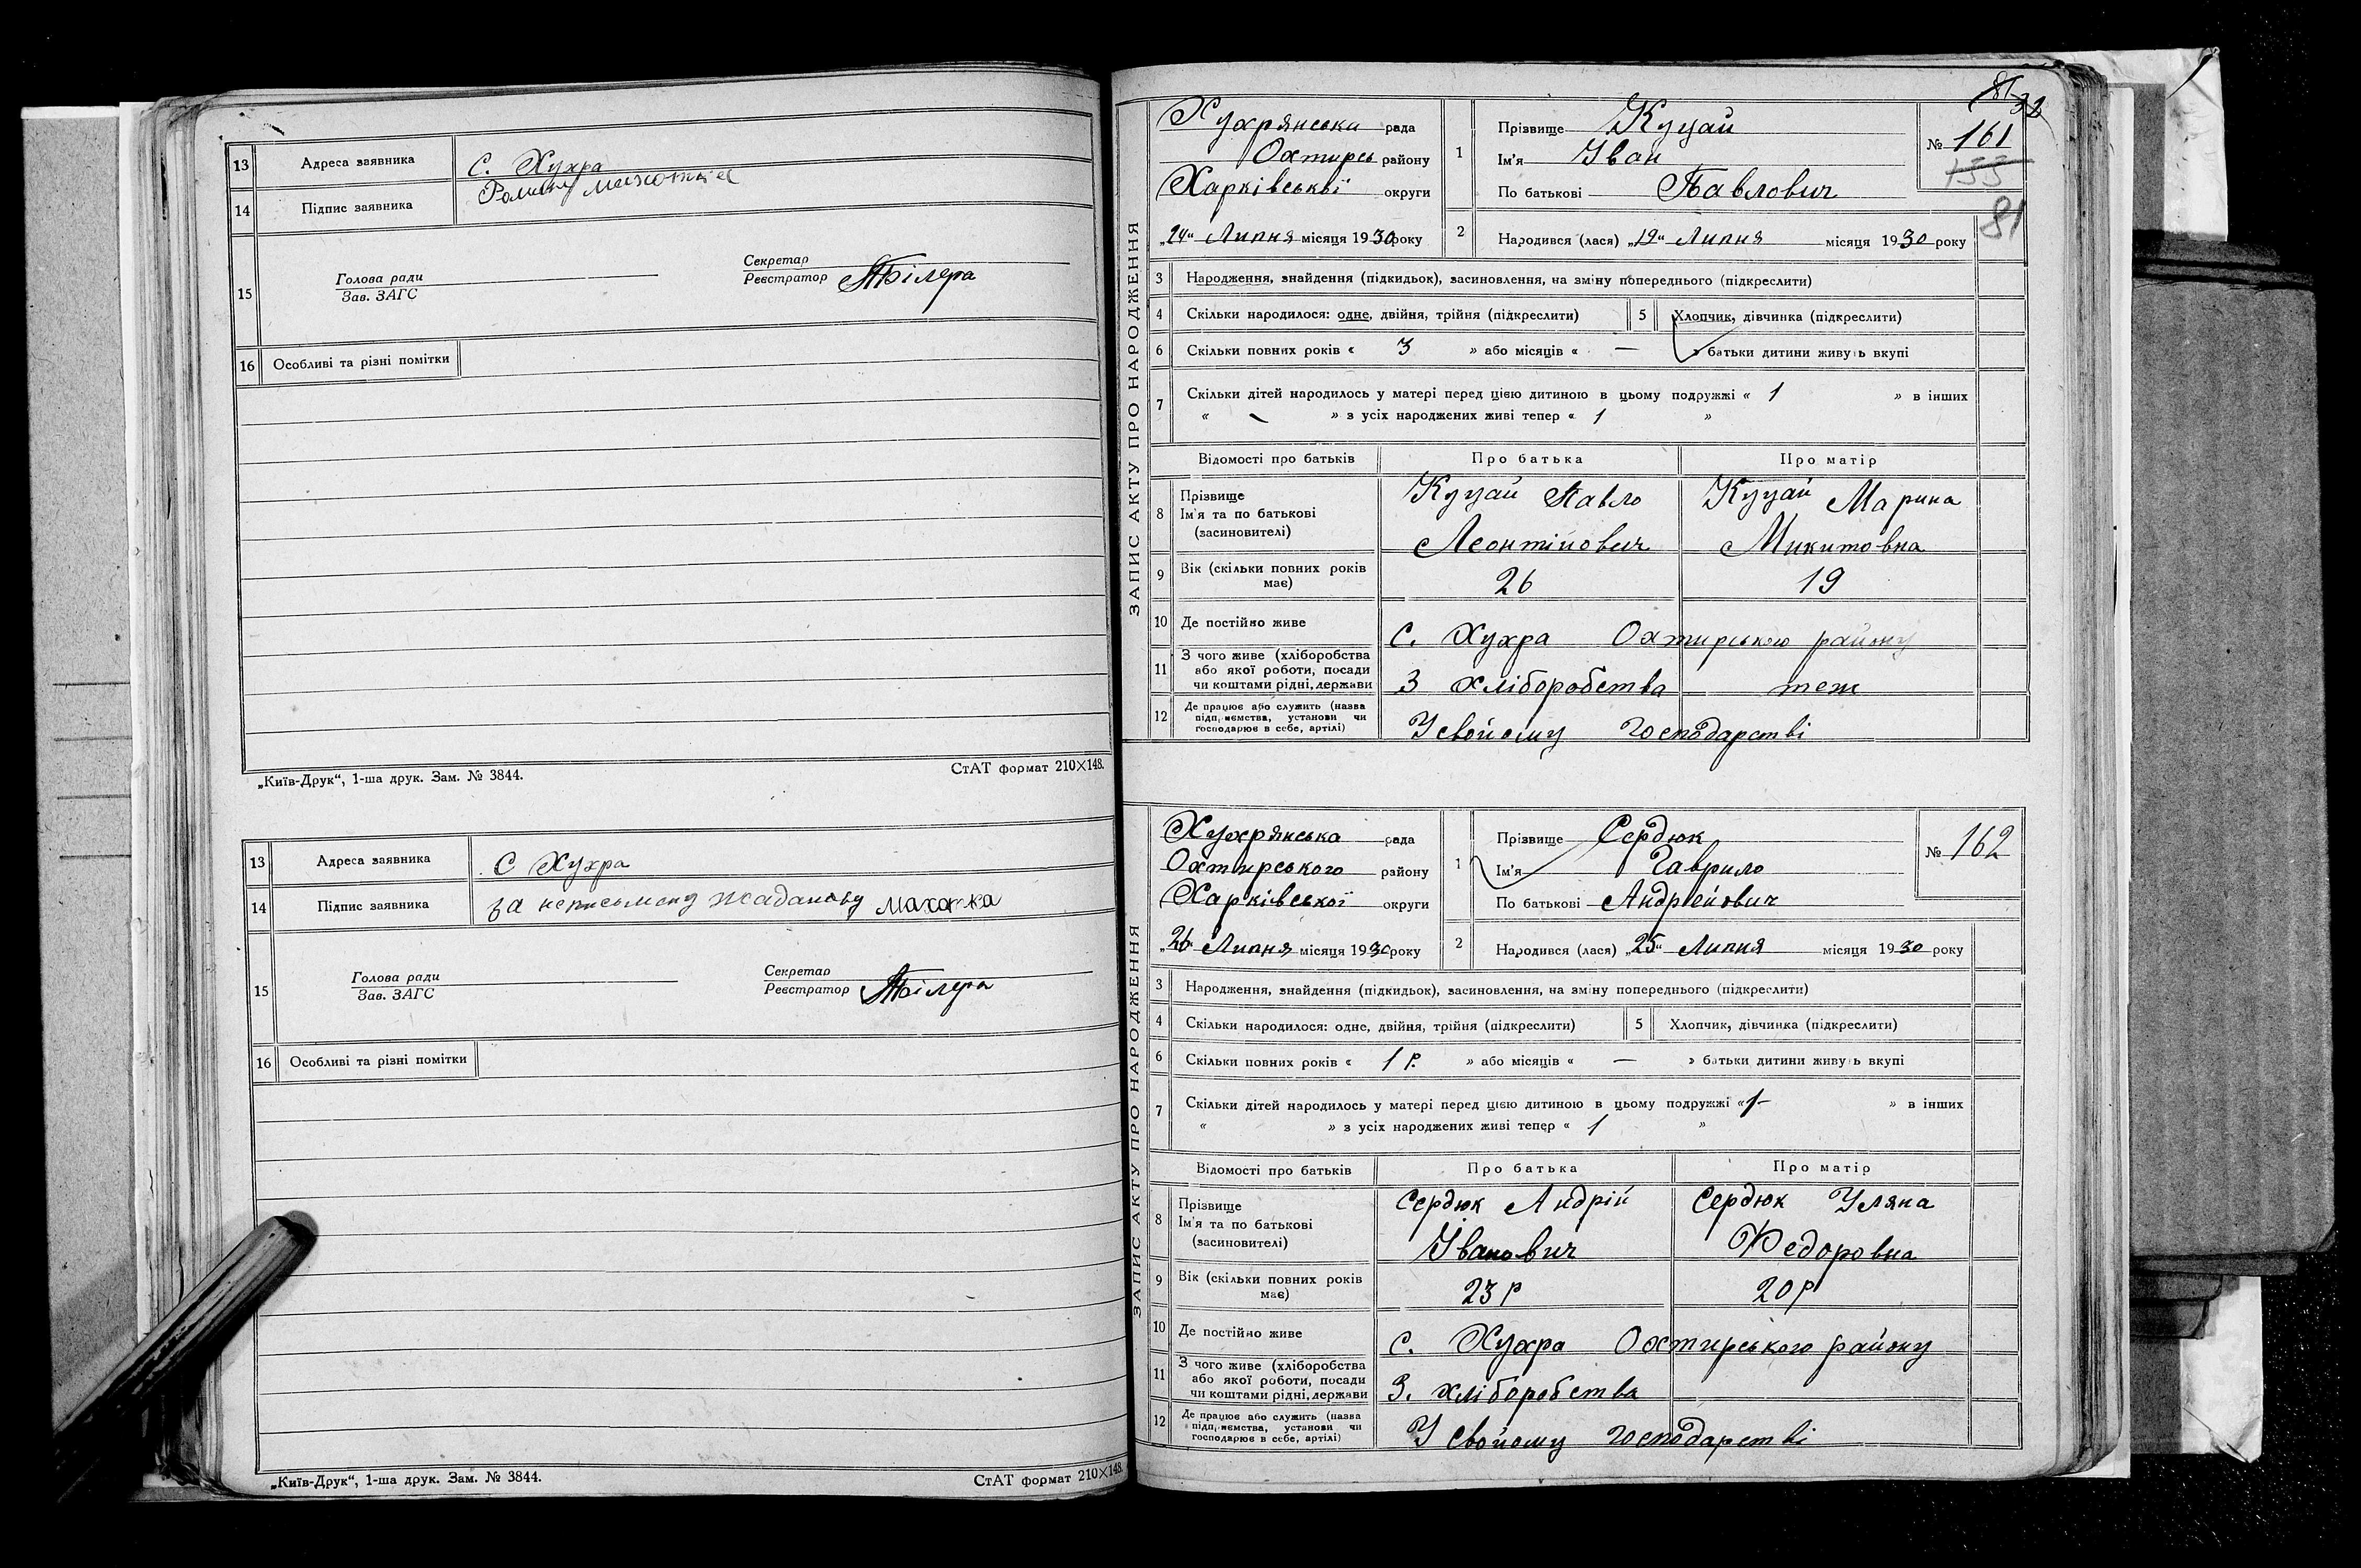 13 Адреса заявника С. Хухра
14 Підпис заявника
15 Голова ради
Зав. ЗАГС
Секретар
Реєстратор
16 Особливі та різні помітки
„Київ-Друк“, 1-ша друк. Зам. № 3844. СтАТ формат 210×148.
13 Адреса заявника С Хухра
14 Підпис заявника за неписьмену
15 Голова ради
Зав. ЗАГС
Секретар
Реєстратор
16 Особливі та різні помітки
„Київ-Друк“, 1-ша друк. Зам. № 3844. СтАТ формат 210×148.
81
ЗАПИС АКТУ ПРО НАРОДЖЕННЯ
Хухрянська рада
Охтирсь району
Харківської округи
„24“ Липня місяця 1930 року
1 Прізвище Куцай
Ім'я Іван
По батькові Павлович
№ 161
155
81
2 Народився (лася) „19“ Липня місяця 1930 року
3 Народження, знайдення (підкидьок), засиновлення, на зміну попереднього (підкреслити)
4 Скільки народилося: одне, двійня, трійня (підкреслити) 5 Хлопчик, дівчинка (підкреслити)
6 Скільки повних років « 3 » або місяців « — » батьки дитини живуть вкупі
7 Скільки дітей народилось у матері перед цією дитиною в цьому подружжі « 1 » в інших
« — » з усіх народжених живі тепер « 1 »
Відомості про батьків Про батька Про матір
8 Прізвище Ім'я та по батькові (засиновителі) Куцай Павло Куцай Марина
Леонтійович Микитовна
9 Вік (скільки повних років має) 26 19
10 Де постійно живе С. Хухра Охтирського району
11 З чого живе (хліборобства або якої роботи, посади чи коштами рідні, держави З хліборобства теж
12 Де працює або служить (назва підприємства, установи чи господарює в себе, артілі) У свойому господарстві
ЗАПИС АКТУ ПРО НАРОДЖЕННЯ
Хухрянська рада
Охтирського району
Харківської округи
„26“ Липня місяця 1930 року
1 Прізвище Сердюк
Ім'я Гаврило
По батькові Андрієйович
№ 162
2 Народився (лася) „25“ Липня місяця 1930 року
3 Народження, знайдення (підкидьок), засиновлення, на зміну попереднього (підкреслити)
4 Скільки народилося: одне, двійня, трійня (підкреслити) 5 Хлопчик, дівчинка (підкреслити)
6 Скільки повних років « 1 р. » або місяців « — » батьки дитини живуть вкупі
7 Скільки дітей народилось у матері перед цією дитиною в цьому подружжі « 1 » в інших
« » з усіх народжених живі тепер « 1 »
Відомості про батьків Про батька Про матір
8 Прізвище Ім'я та по батькові (засиновителі) Сердюк Андрій Сердюк Уляна
Іванович Федоровна
9 Вік (скільки повних років має) 23 р 20 р
10 Де постійно живе С. Хухра Охтирського району
11 З чого живе (хліборобства або якої роботи, посади чи коштами рідні, держави З. хліборобства
12 Де працює або служить (назва підприємства, установи чи господарює в себе, артілі) У свойому господарстві